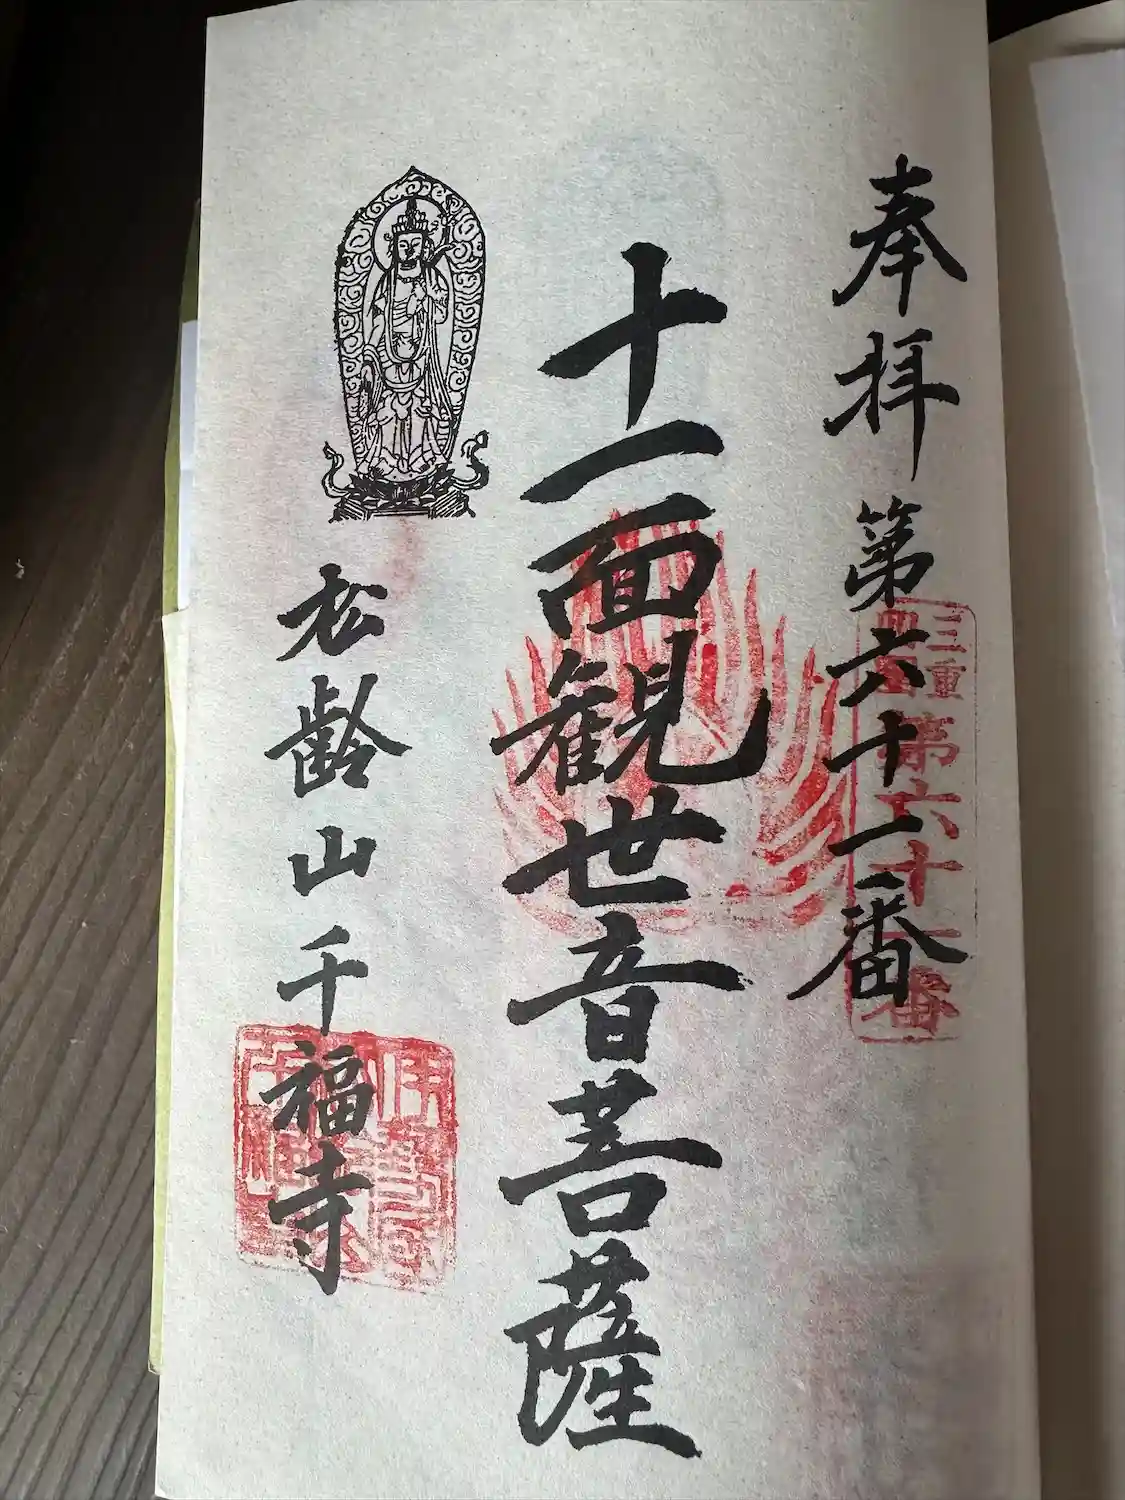 奉拝 第六十二番
三重
四国
第六十二番
十一面観世音菩薩
松齢山千福寺